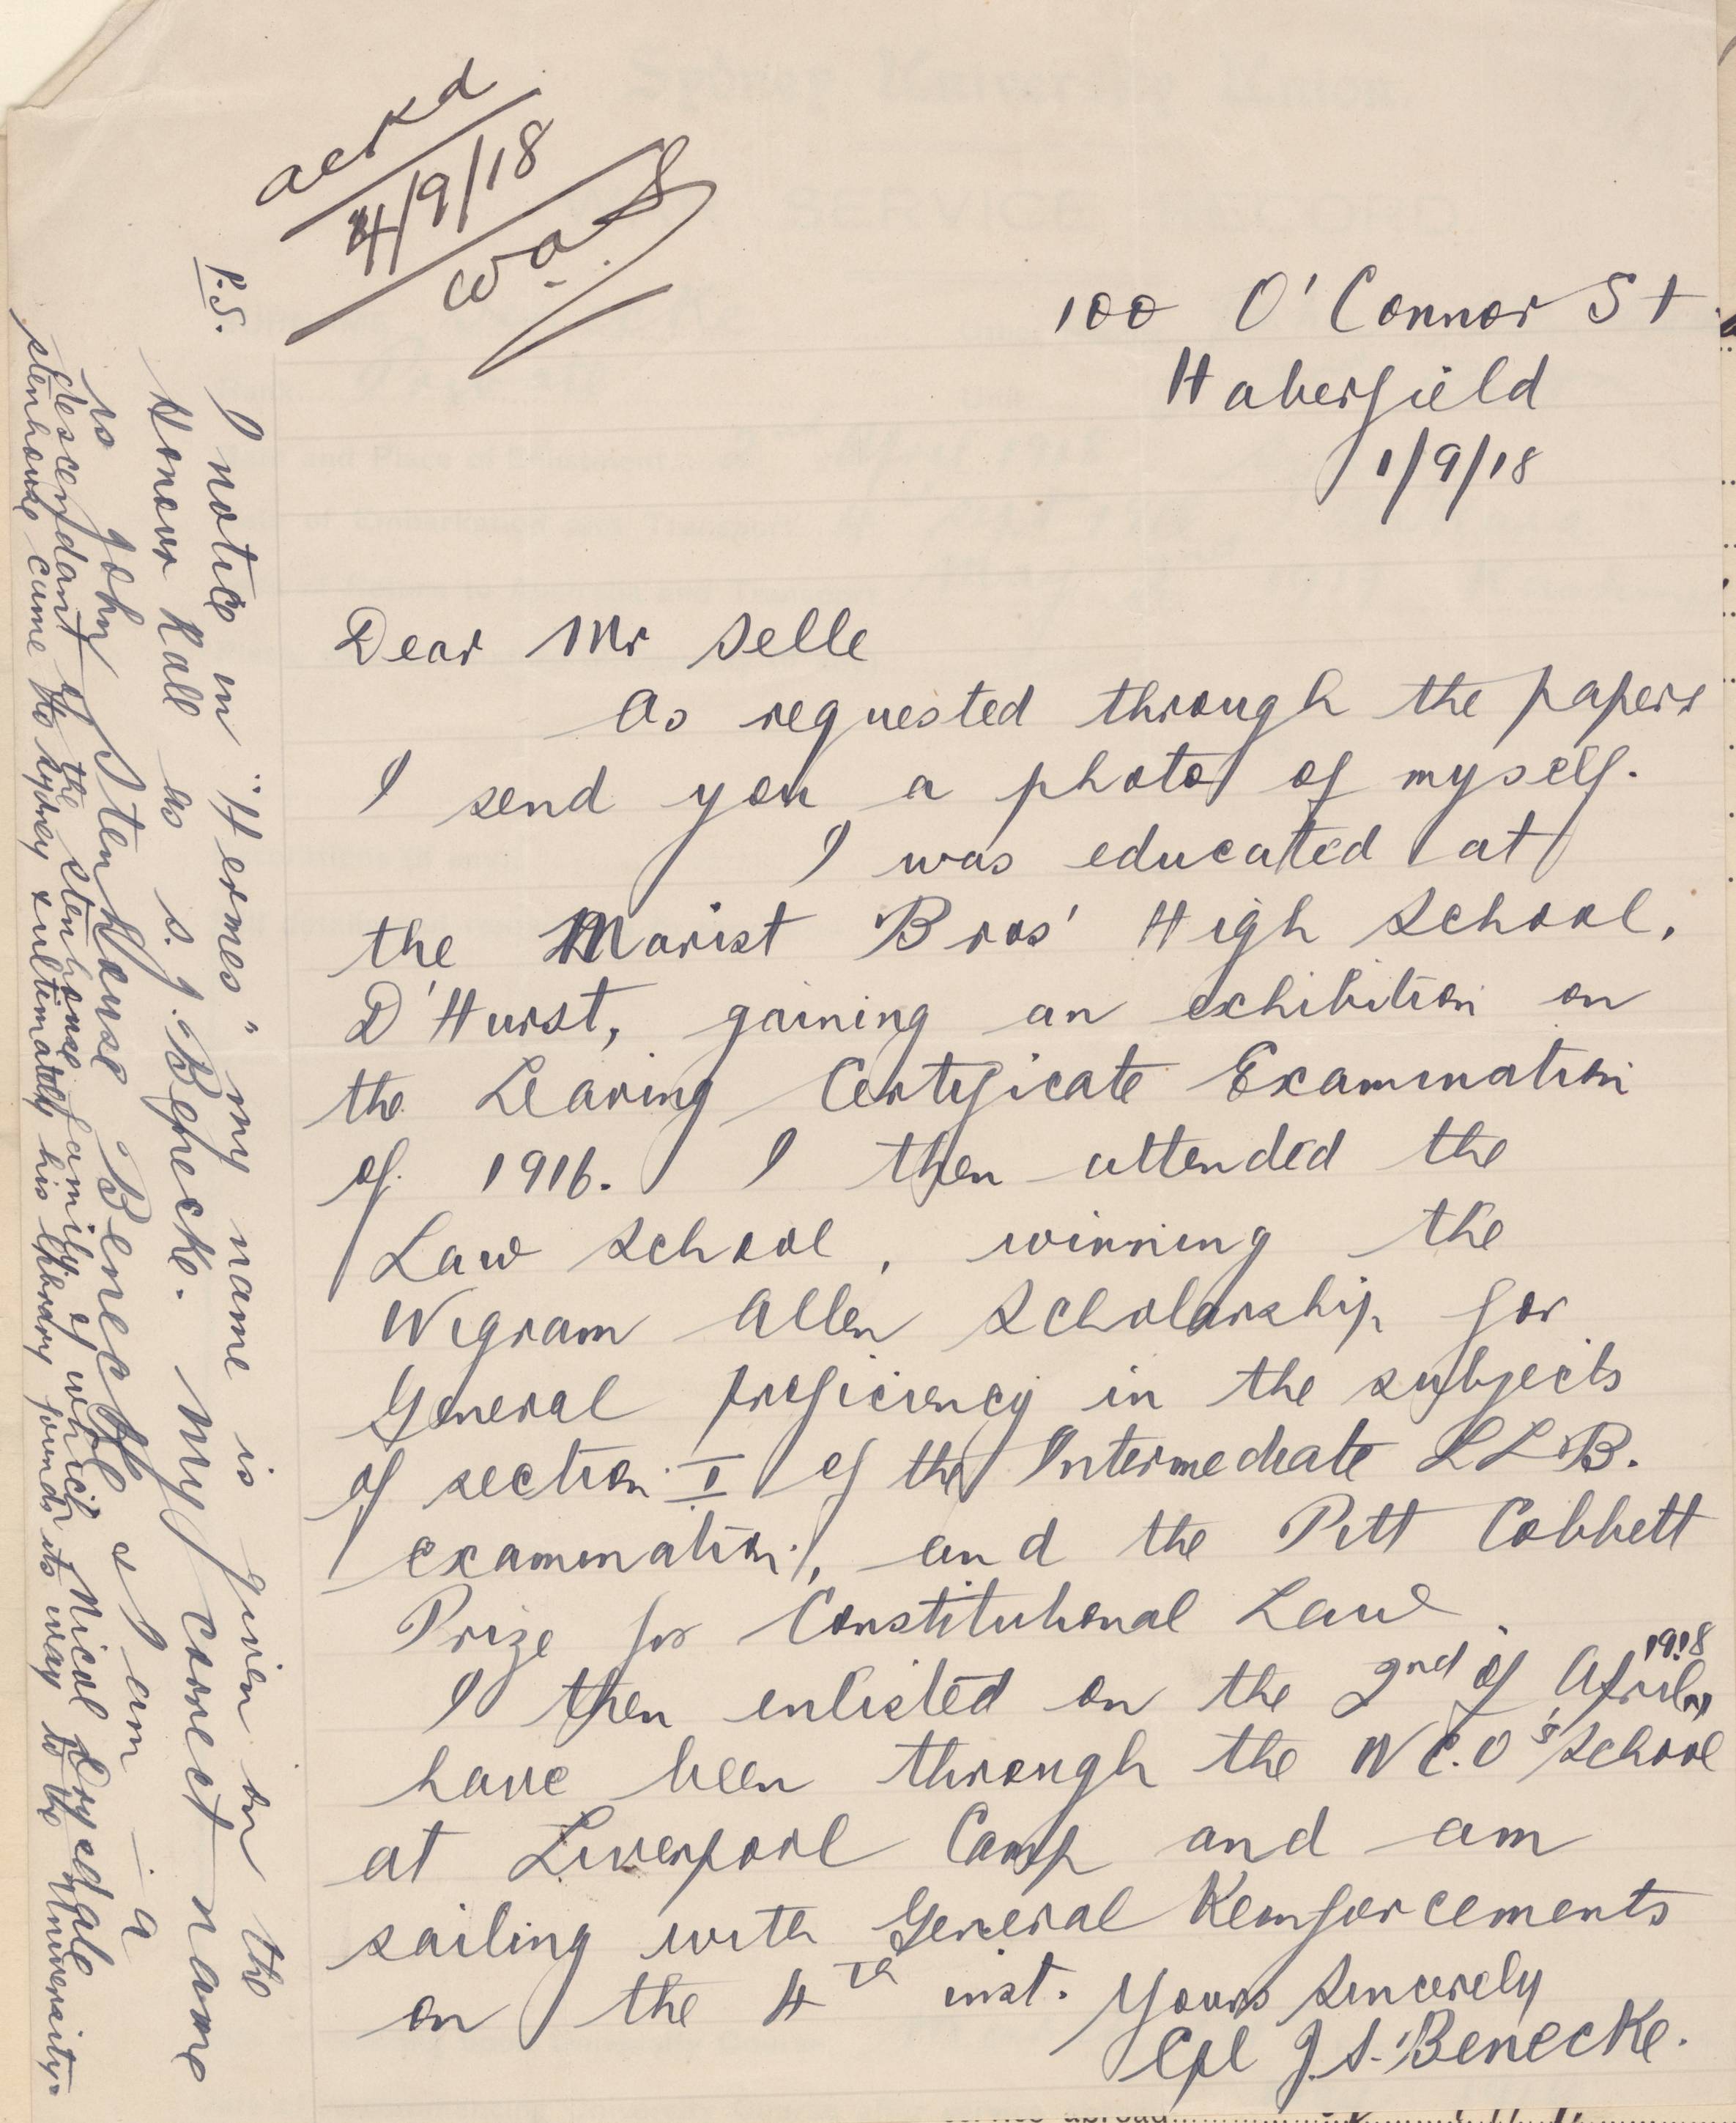 ackd
4/9/18
W.A.S
100 O'Connor St
Haberfield
1/9/18
Dear Mr Selle
As requested through the papers
I send you a photo of myself.
I was educated at
the Marist Bros' High School,
D'Hurst, gaining an exhibition on
the Leaving Certificate Examination
of 1916. I then attended the
Law School, winning the
Wigram Allen Scholarship for
General proficiency in the subjects
of section I of the Intermediate LLB.
examination, and the Pitt Cobbett
Prize for Constitutional Law.
I then enlisted on the 2nd of April, 1918
have been through the N.C.O's School
at Liverpool Camp and am
sailing with General Reinforcements
on the 4th inst. Yours Sincerely
Cpl J. S. Benecke.
P.S. I notice in "Hermes" my name is given on the
Honour Roll as S. J. Benecke. My correct name
is John Stenhouse Benecke & I am - a
descendant of the Stenhouse family of which Nicol Drysdale
Stenhouse came to Sydney & ultimately his library found its way to the University.